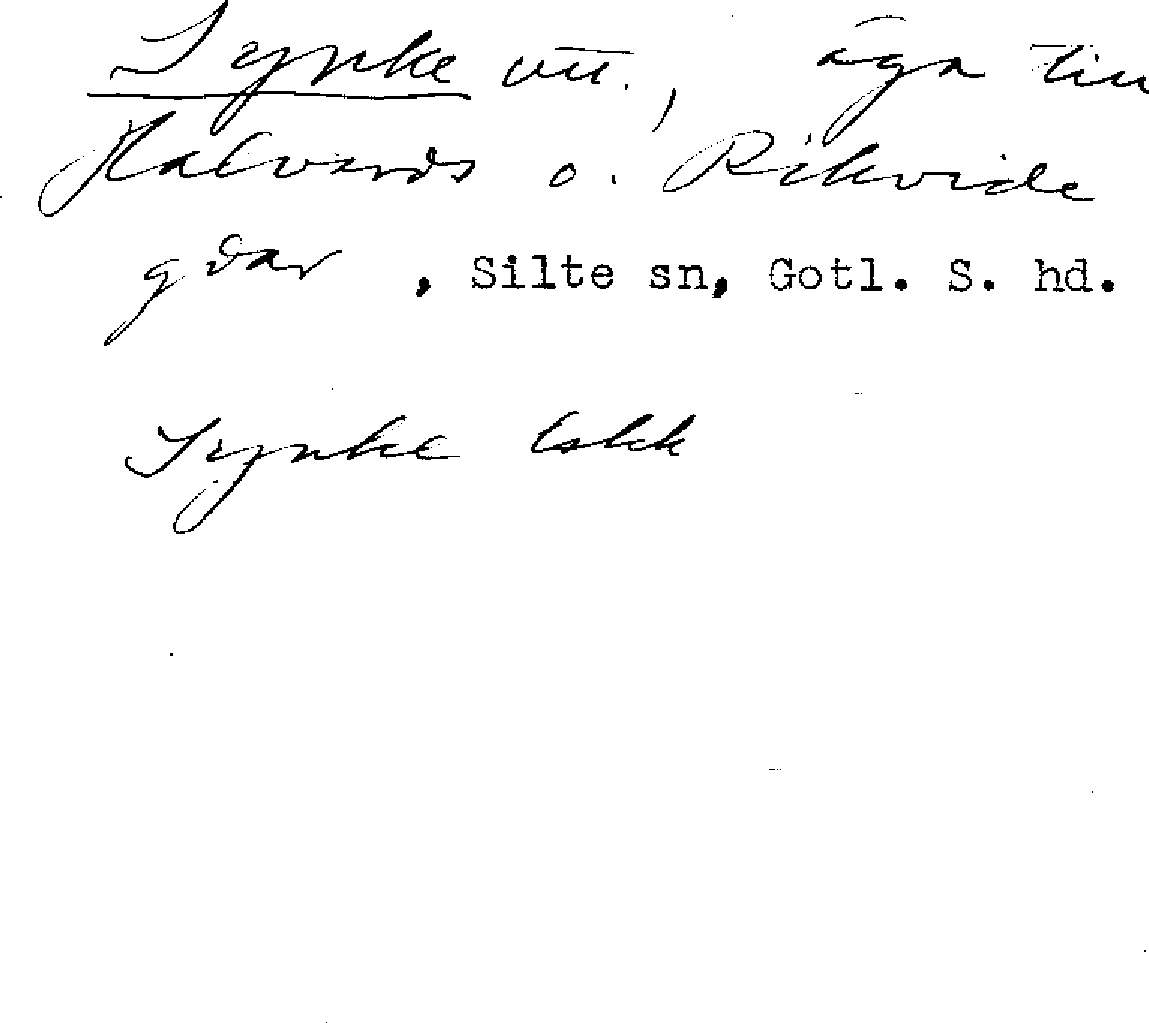 Synke vtt., äga till
Halvards o. Rikvide
gdar , Silte sn, Gotl. S. hd.
Synke Eskk